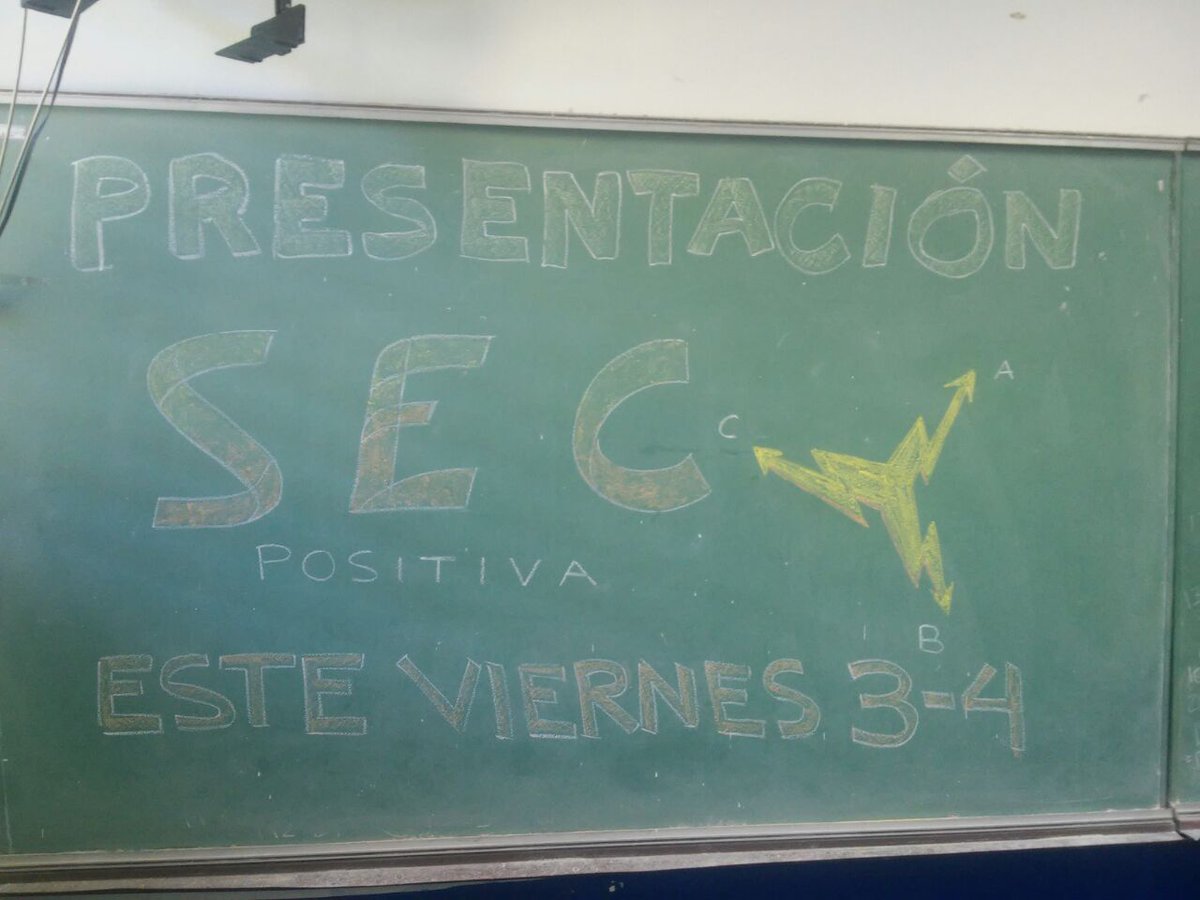 PRESENTACIÓN
SEC
A
C
POSITIVA
B
ESTE VIERNES 3-4